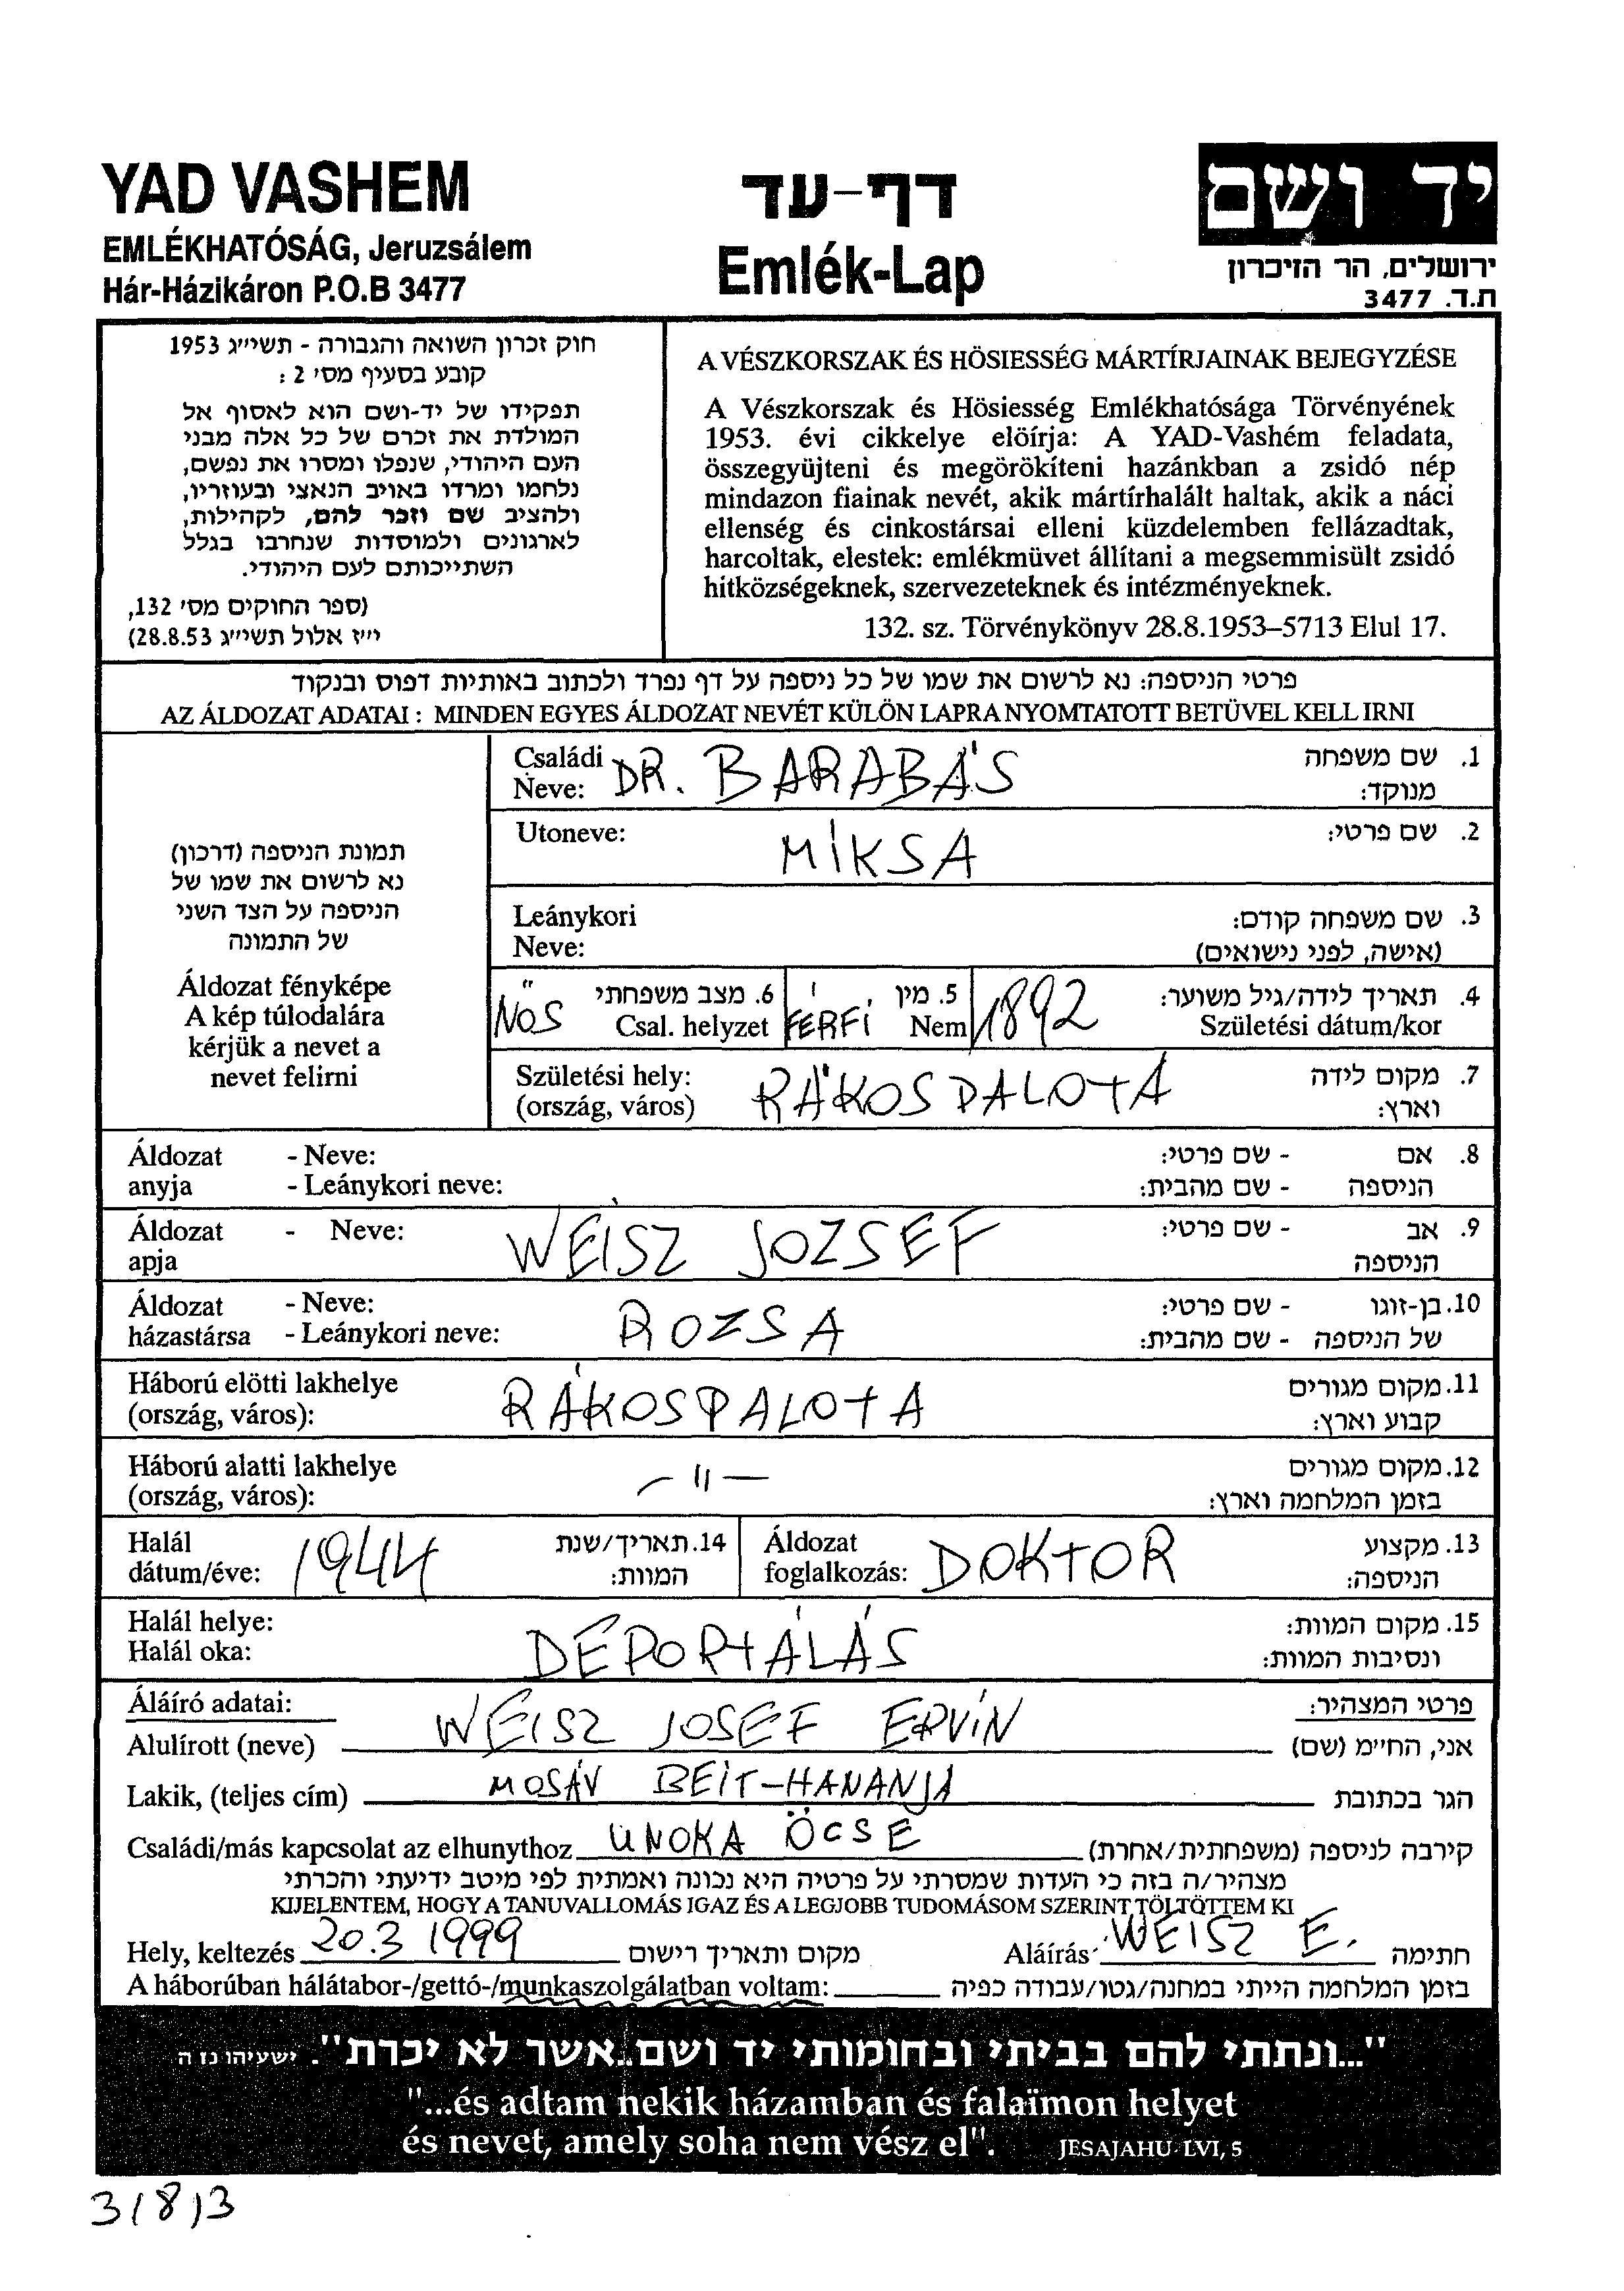 YAD VASHEM
EMLÉKHATÓSÁG, Jeruzsálem
Hár-Házikáron P.O.B 3477
דף-עד
Emlék-Lap
יד ושם
ירושלים, הר הזיכרון
ת.ד. 3477
חוק זכרון השואה והגבורה - תשי״ג 1953
קובע בסעיף מס׳ 2 :
תפקידו של יד-ושם הוא לאסוף אל
המולדת את זכרם של כל אלה מבני
העם היהודי, שנפלו ומסרו את נפשם,
נלחמו ומרדו באויב הנאצי ובעוזריו,
ולהציב שם וזכר להם, לקהילות,
לארגונים ולמוסדות שנחרבו בגלל
השתייכותם לעם היהודי.
(ספר החוקים מס׳ 132,
י״ז אלול תשי״ג 28.8.53)
A VÉSZKORSZAK ÉS HÖSIESSÉG MÁRTÍRJAINAK BEJEGYZÉSE
A Vészkorszak és Hösiesség Emlékhatósága Törvényének
1953. évi cikkelye elöírja: A YAD-Vashém feladata,
összegyüjteni és megörökíteni hazánkban a zsidó nép
mindazon fiainak nevét, akik mártírhalált haltak, akik a náci
ellenség és cinkostársai elleni küzdelemben fellázadtak,
harcoltak, elestek: emlékmüvet állítani a megsemmisült zsidó
hitközségeknek, szervezeteknek és intézményeknek.
132. sz. Törvénykönyv 28.8.1953–5713 Elul 17.
פרטי הניספה: נא לרשום את שמו של כל ניספה על דף נפרד ולכתוב באותיות דפוס ובנקוד
AZ ÁLDOZAT ADATAI : MINDEN EGYES ÁLDOZAT NEVÉT KÜLÖN LAPRA NYOMTATOTT BETÜVEL KELL IRNI
תמונת הניספה (דרכון)
נא לרשום את שמו של
הניספה על הצד השני
של התמונה
Áldozat fényképe
A kép túlodalára
kérjük a nevet a
nevet felirni
Családi Neve: DR. BARABÁS 1. שם משפחה מנוקד:
Utoneve: MIKSA 2. שם פרטי:
Leánykori Neve: 3. שם משפחה קודם: (אישה, לפני נישואים)
NŐS 6. מצב משפחתי Csal. helyzet FÉRFI 5. מין Nem 1892 4. תאריך לידה/גיל משוער: Születési dátum/kor
Születési hely: (ország, város) RÁKOSPALOTA 7. מקום לידה וארץ:
Áldozat - Neve: - שם פרטי: 8. אם
anyja - Leánykori neve: - שם מהבית: הניספה
Áldozat - Neve: WEISZ JOZSEF - שם פרטי: 9. אב
apja הניספה
Áldozat - Neve: ROZSA - שם פרטי: 10. בן-זוגו
házastársa - Leánykori neve: - שם מהבית: של הניספה
Háború elötti lakhelye (ország, város): RÁKOSPALOTA 11. מקום מגורים קבוע וארץ:
Háború alatti lakhelye (ország, város): — 11 — 12. מקום מגורים בזמן המלחמה וארץ:
Halál dátum/éve: 1944 14. תאריך/שנת המוות: Áldozat foglalkozás: DOKTOR 13. מקצוע הניספה:
Halál helye: 15. מקום המוות:
Halál oka: DEPORTÁLÁS ונסיבות המוות:
Áláíró adatai: פרטי המצהיר:
Alulírott (neve) WEISZ JOSEF ERVIN אני, החי״מ (שם)
Lakik, (teljes cím) MOSÁV BEIT-HANANJA הגר בכתובת
Családi/más kapcsolat az elhunythoz UNOKA ÖCSE קירבה לניספה (משפחתית/אחרת)
מצהיר/ה בזה כי העדות שמסרתי על פרטיה היא נכונה ואמתית לפי מיטב ידיעתי והכרתי
KIJELENTEM, HOGY A TANUVALLOMÁS IGAZ ÉS A LEGJOBB TUDOMÁSOM SZERINT TÖLTÖTTEM KI
Hely, keltezés 20.3 1999 מקום ותאריך רישום Aláírás WEISZ E. חתימה
A háborúban hálátabor-/gettó-/munkaszolgálatban voltam: בזמן המלחמה הייתי במחנה/גטו/עבודה כפיה
"...ונתתי להם בביתי ובחומותי יד ושם..אשר לא יכרת". ישעיהו נו ה
"...és adtam nekik házamban és falaïmon helyet
és nevet, amely soha nem vész el". JESAJAHU LVI, 5
318)3